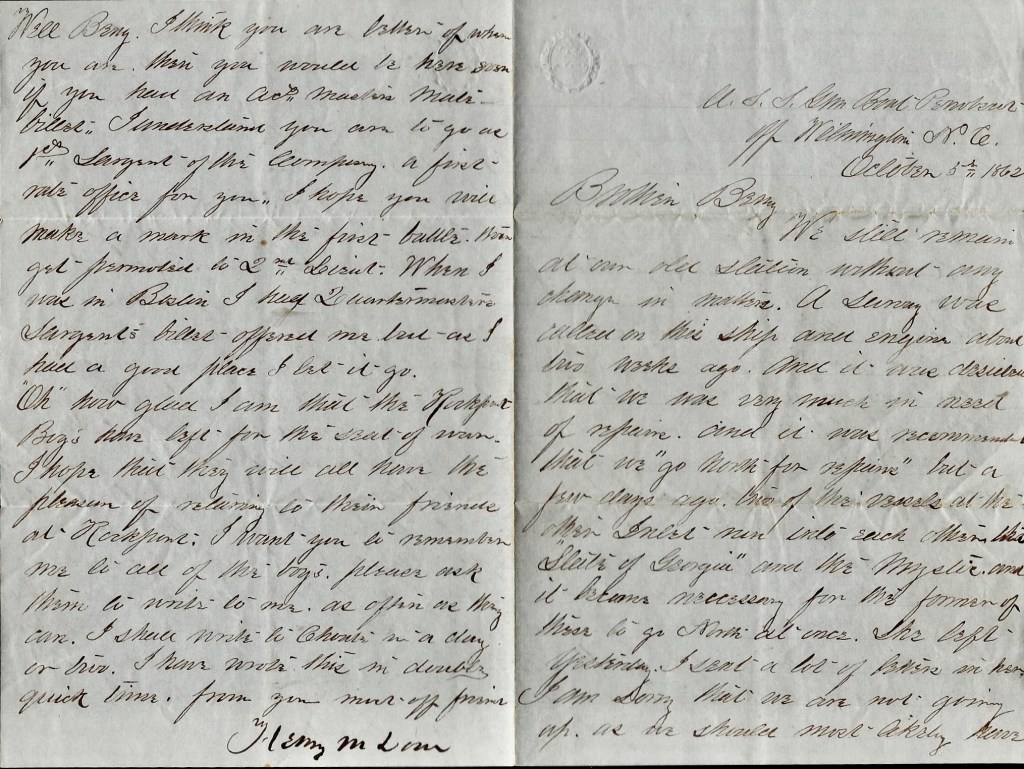 U. S. S. Gun Boat Penobscot
off Wilmington N. C.
October 5th 1862
Brother Benj
We still remain
at our old station without any
change in matters. A Survey was
called on this ship and engine about
two weeks ago. And it was decided
that we was very much in need
of repairs. and it was recommend
that we "go North for repairs" but a
few days ago. two of the vessels at the
other Inlet run into each other, the
State of Georgia" and the Mystic. and
it became neccessary for the former of
these to go North at once. She left
Yesterday. I sent a lot of letters in her
I am Sorry that we are not going
up. as we should most likely have
Well Benj. I think you are better of where
you are. then you would be here even
if you had an Act. Masters Mate
billet. I understand you are to go as
1st Sargent of the Company. a first
rate office for you. I hope you will
make a mark in the first battle.
get permoted to 2nd Lieut. When I
was in Boston I had Quartermasters
Sargent's billet offered me. but as I
had a good place I let it go.
"Oh" how glad I am that the Rockport
Boy's have left for the seat of war.
I hope that they will all have the
pleasure of returing to their friends
at Rockport. I want you to remember
me to all of the boy's. please ask
them to write to me. as often as they
can. I shall write to Choate in a day
or two. I have wrote this in double
quick time. from you most off friend
Henry M Low